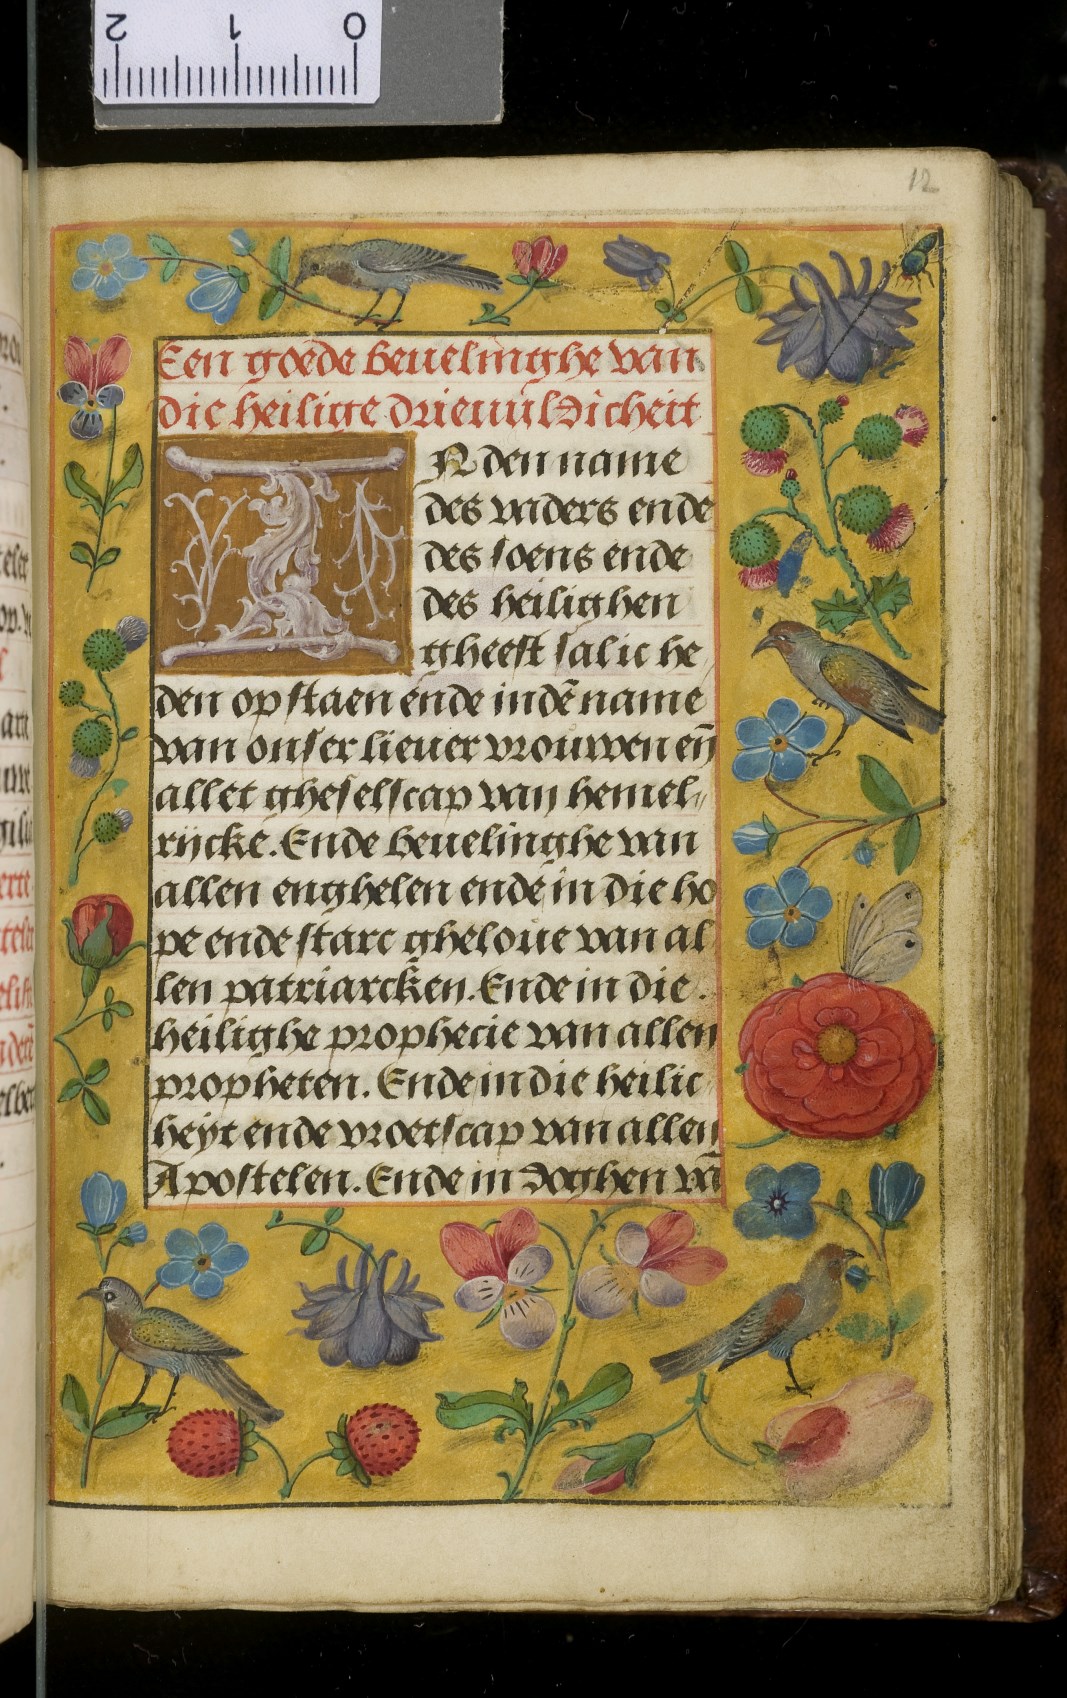 12
Een goede beuelinghe van
die heilige drieuuldicheit
IN den name
des vaders ende
des soens ende
des heilighen
gheest salic he
den opstaen ende indē name
van onser lieuer vrouwen eñ
allet gheselscap van hemel„
rijcke. Ende beuelinghe van
allen enghelen ende in die ho
pe ende starc gheloue van al
len patriarcken. Ende in die.
heilighe prophecie van allen
propheten. Ende in die heilic
heyt ende vroetscap van allen
Apostelen. Ende in doghen vā
0 1 2